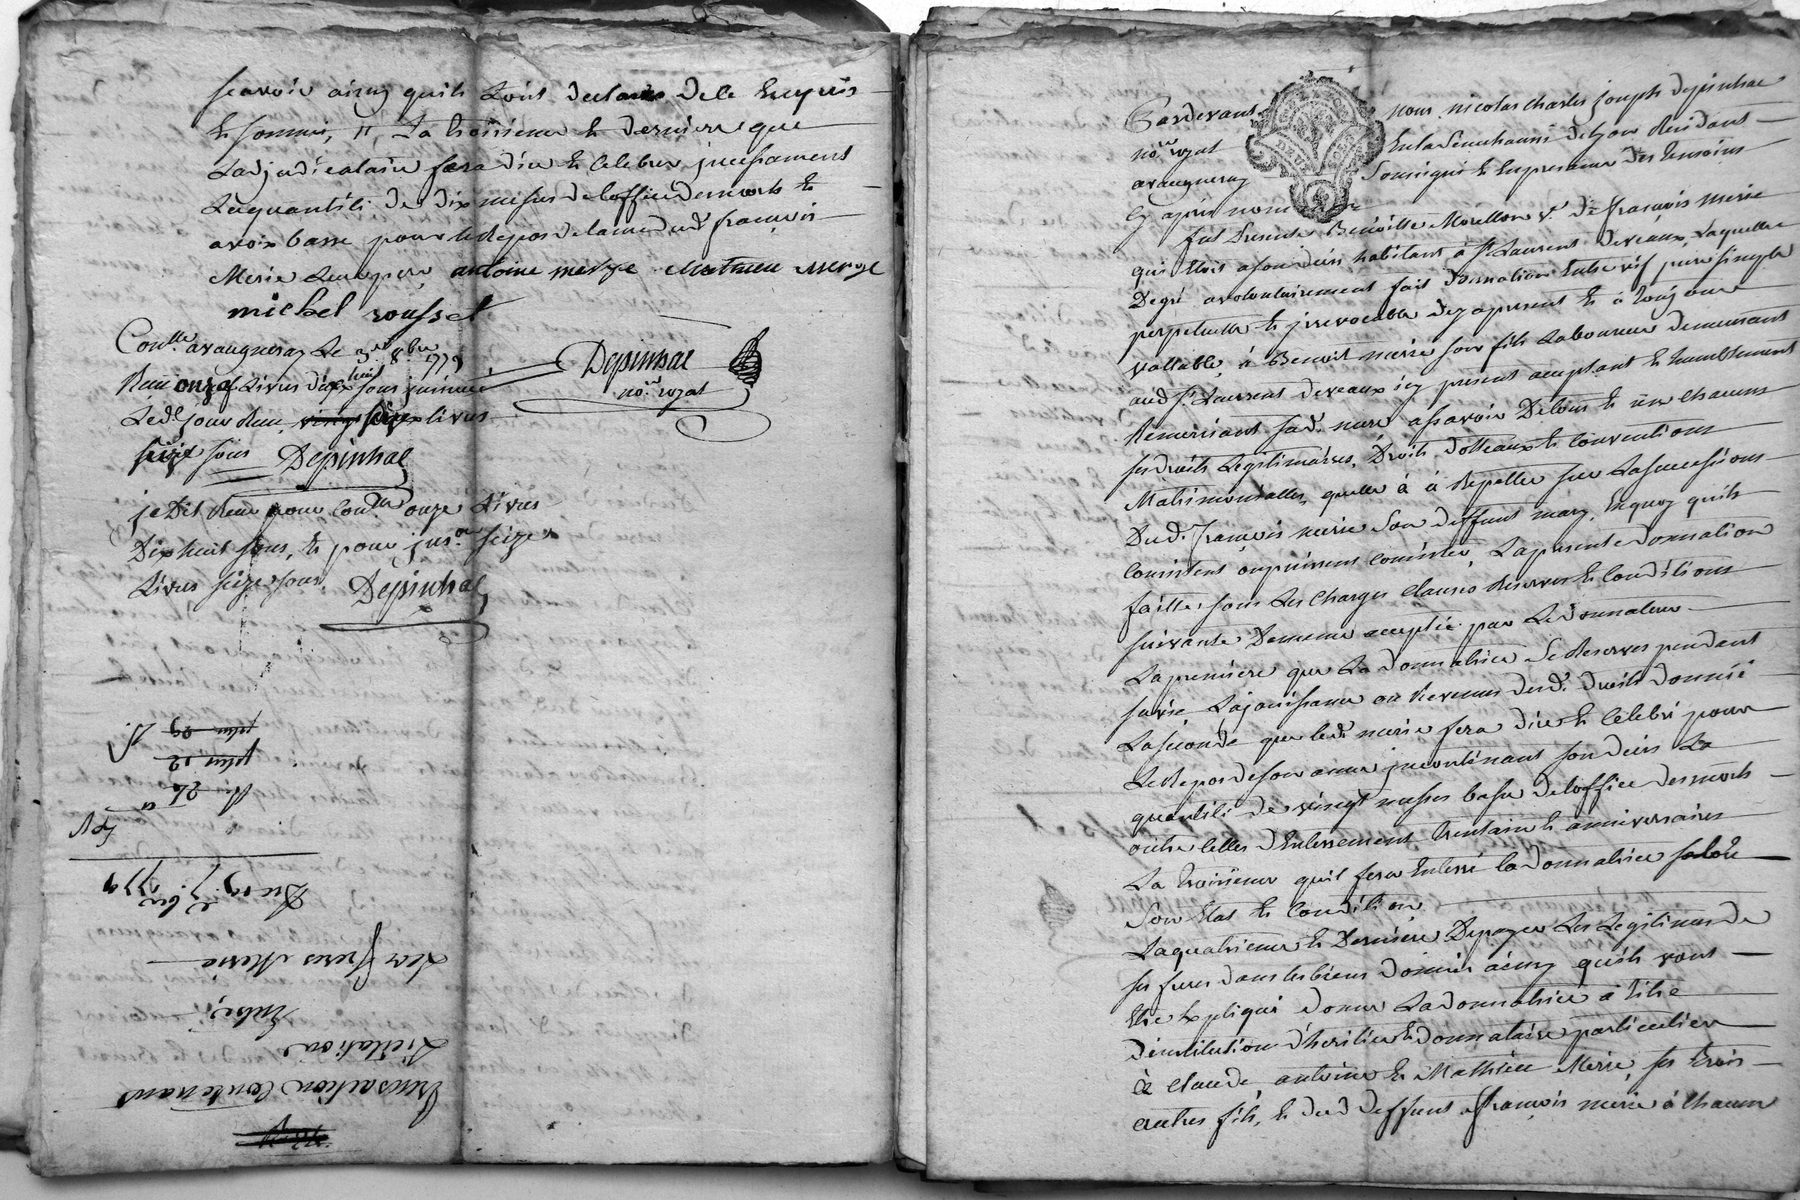 scavoir ainsy quils sont declarés de le enquis
et sommés, 11, La troisieme et derniere que
Ladjudicataire fera dire et celebrer incessament
La quantité de dix messes de loffice des morts et
a voix basse pour le Repos de lame dud. françois
Merie Leur pere, antoine merye mathieu merye
michel rousset
Con.lle a vaugneray Le 3.e 8.bre 1779
Reçu onze Livres dix huit sous
Led. jour Reçu livres
seize sous Depinhac
Depinhac
no.re royal
je Dit Reçu pour Con.lle onze Livres
Dix huit sous, et pour insi.on seize
Livres seize sous. Depinhac
Transaction Contenant
Licitation
Entre,
Les freres Merie
Du 19. 7.bre 1779
R. 26
plus 12
plus 29
Pardevant nous nicolas charles joseph depinhac
no.re royal En la Senechaussée de Lyon Residant
a vaugneray Soussigné et En presence des temoins
cy apres nommés
fut Presente Benoitte Morellon v.e de françois merie
qui etoit a son deces habitant à S.t Laurent de veaux, Laquelle
De gré a volontairement fait Donnation Entre vif pure simple
perpetuelle et jrrevocable dez apresent et à toujours
vallable, à Benoit merie son fils Laboureur demeurant
aud. S.t Laurent de veaux icy present acceptant et humblement
Remerciant sad. mere assavoir De tous et un chacuns
ses droits Legitimaires, Droits dotteaux et Conventions
Matrimonialles, quelle à à Repetter sur La succession
Dud. françois merie Son deffunt mary, En quoy quils
Consistent ou puissent consister, La presente Donnation
faitte sous Les Charges Clauses Reserves et Conditions
suivantes Demeure acceptée par Le Donnateur
La premiere que La donnatrice Se Reserves pendant
sa vie La jouissance ou Revenus desd. droits donnés
La seconde que led. merie fera dire et Celebré pour
Le Repos de son ame incontinant son deces La
quantité de vingt messes basse de Loffice des morts
outre Celles d'Enterrement trentain et anniversaires
La troisieme quil fera Enterré la donnatrice selon
Son Etat et Condition
La quatrieme et Derniere De payer Les Legitimes de
ses freres dans les biens donnés ainsy quils vont
Etre Expliqué donne La donnatrice à titre
d'institution d'heritier et donnataire particulier
à Claude antoine et Mathieu Merie, ses trois
autres fils, et dud. deffunt françois merie à Chacun